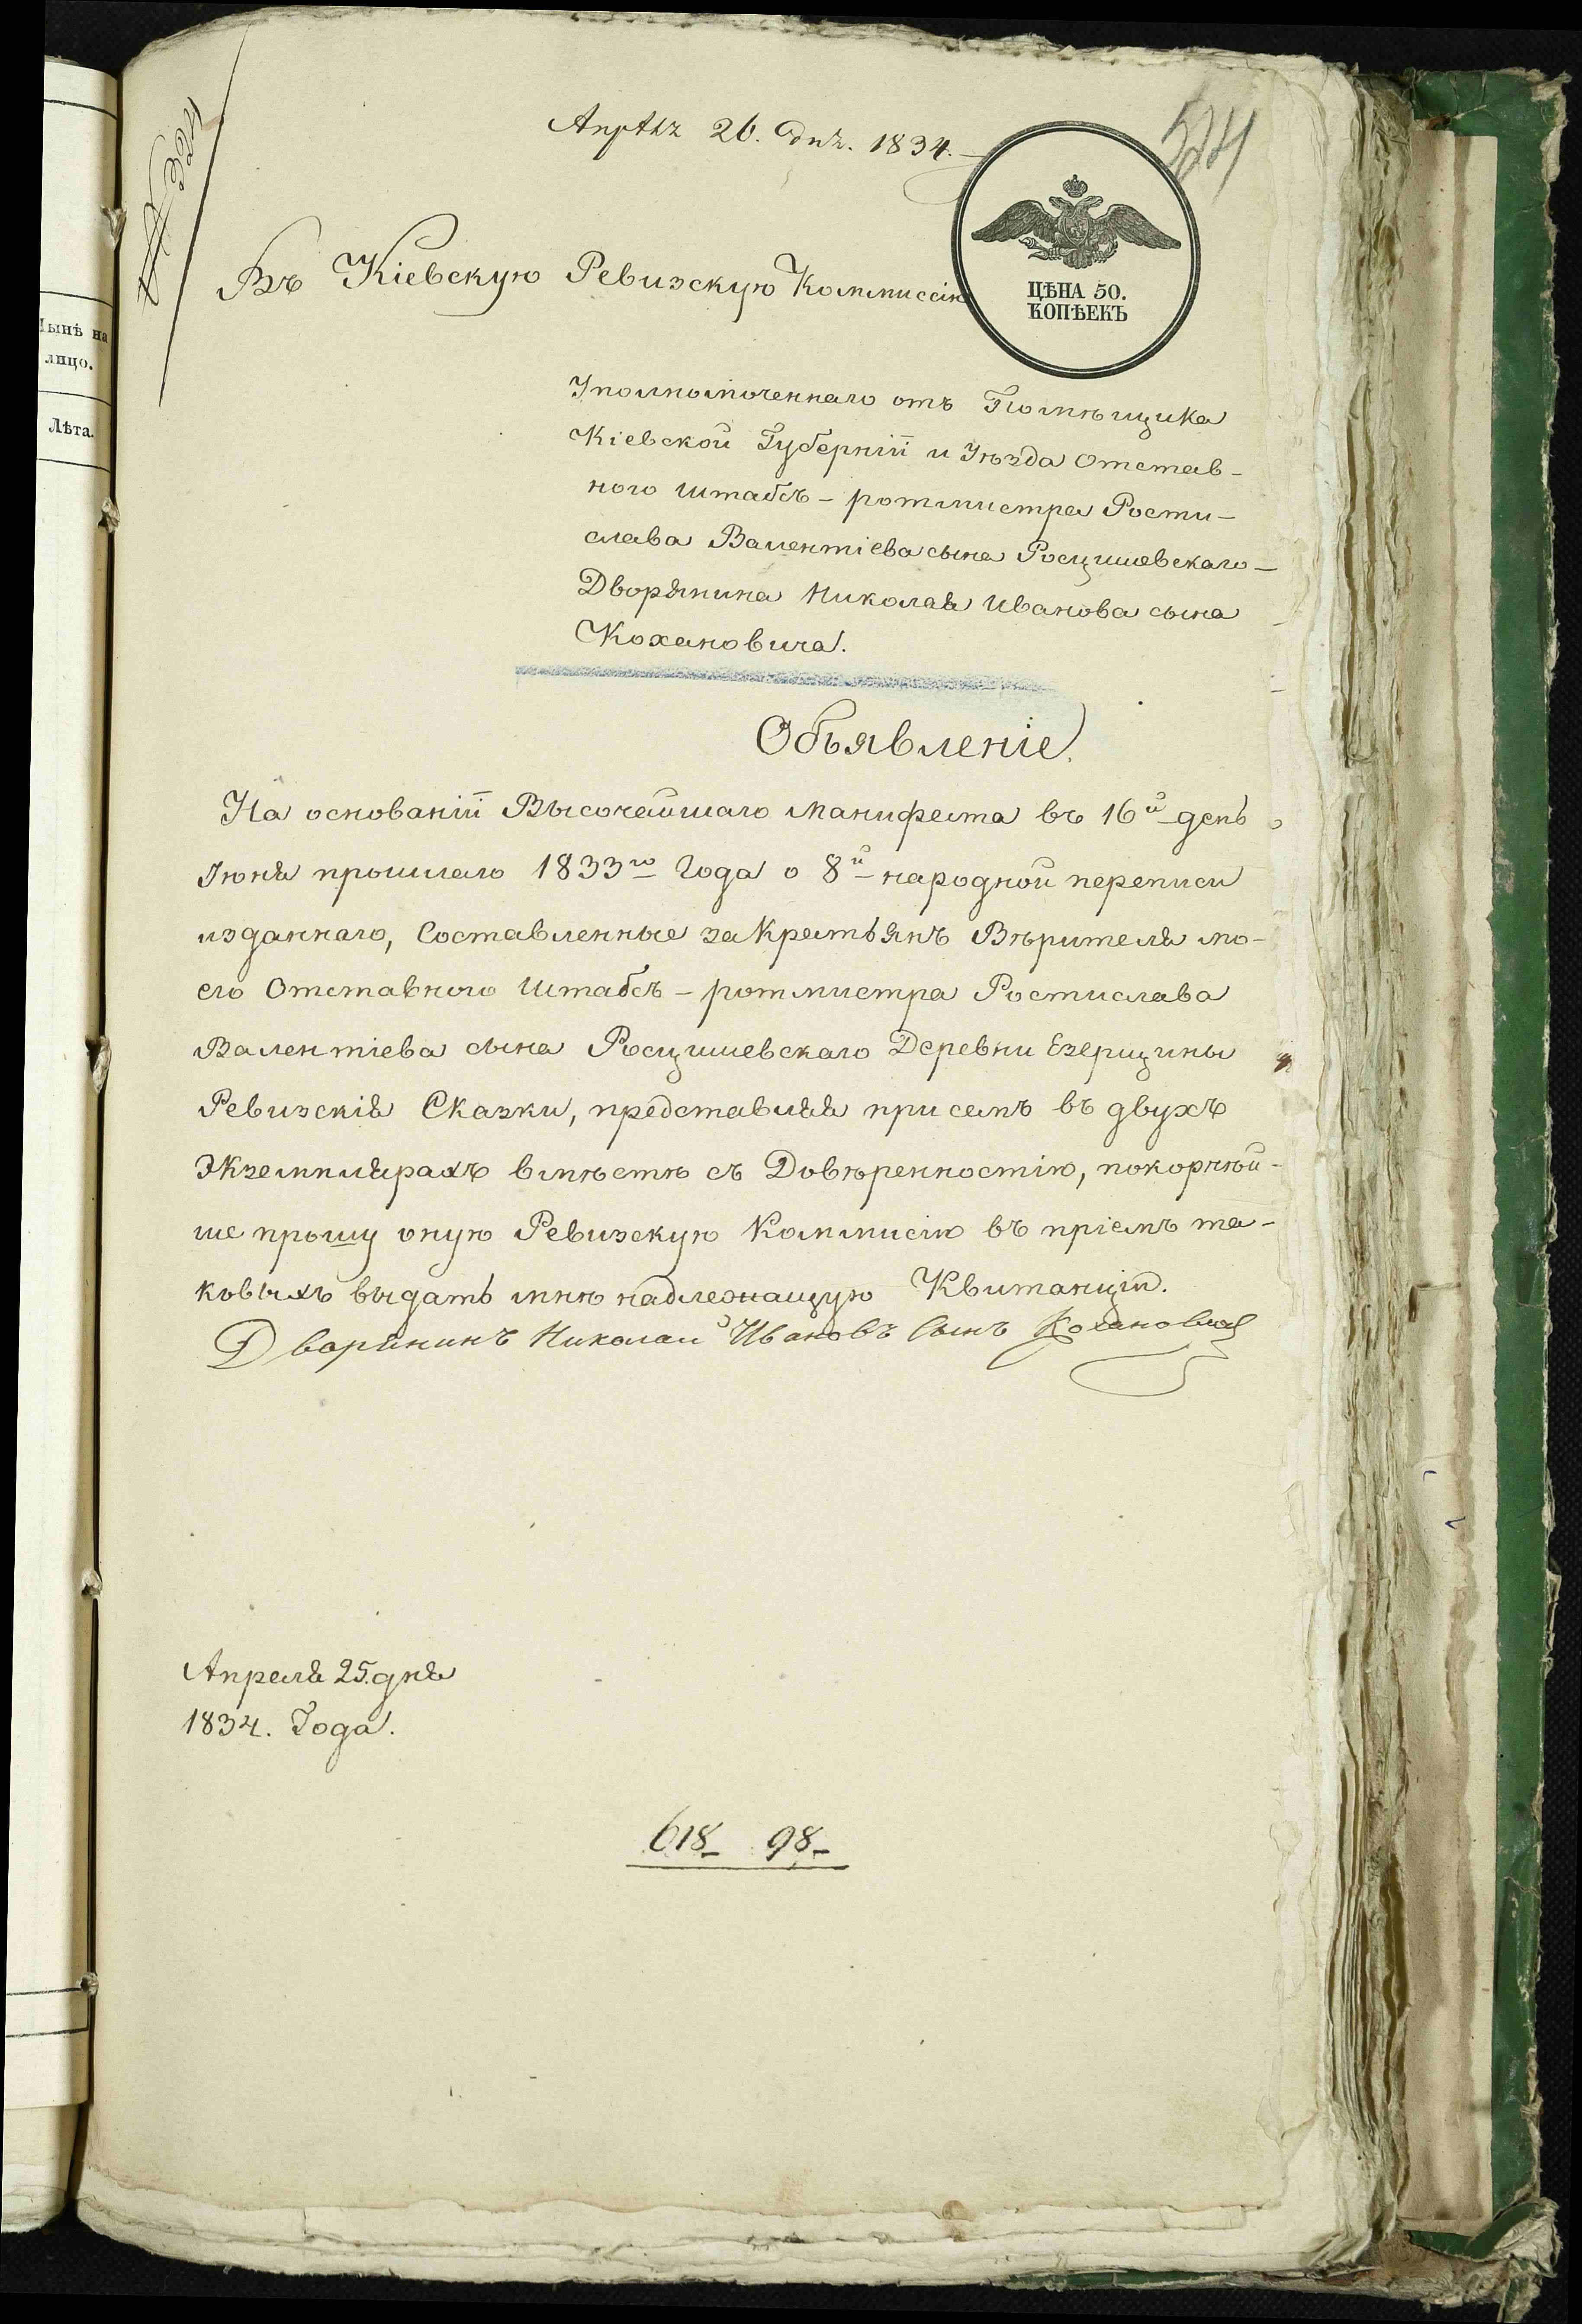 № 324
Апрѣля 26. дня. 1834.
524
Въ Кіевскую Ревизскую Коммиссію
ЦѢНА 50.
КОПѢЕКЪ
Уполномоченнаго отъ Помѣщика
Кіевской Губерніи и Уѣзда Отстав-
ного штабсъ-ротмистра Рости-
слава Валентіева сына Росцишевскаго-
Дворянина Николая Иванова сына
Кохановича.
Объявленіе.
На основаніи Высочайшаго манифеста въ 16й день
Іюня прошлаго 1833го Года о 8й народной переписи
изданнаго, Составленные за Крестьянъ Вѣрителя мо-
его Отставного Штабсъ-ротмистра Ростислава
Валентіева сына Росцишевскаго Деревни Езерщины
Ревизскія Сказки, представляя при семъ въ двухъ
Экземплярахъ вмѣстѣ съ Довѣренностію, покорнѣй-
ше прошу оную Ревизскую Коммисію въ пріемъ та-
ковыхъ выдать мнѣ надлежащую Квитанцію.
Дворянинъ Николай Ивановъ Сынъ Кохановичь
Апреля 25. дня
1834. Года.
618- 98-
Нынѣ на
лицо.
Лѣта.